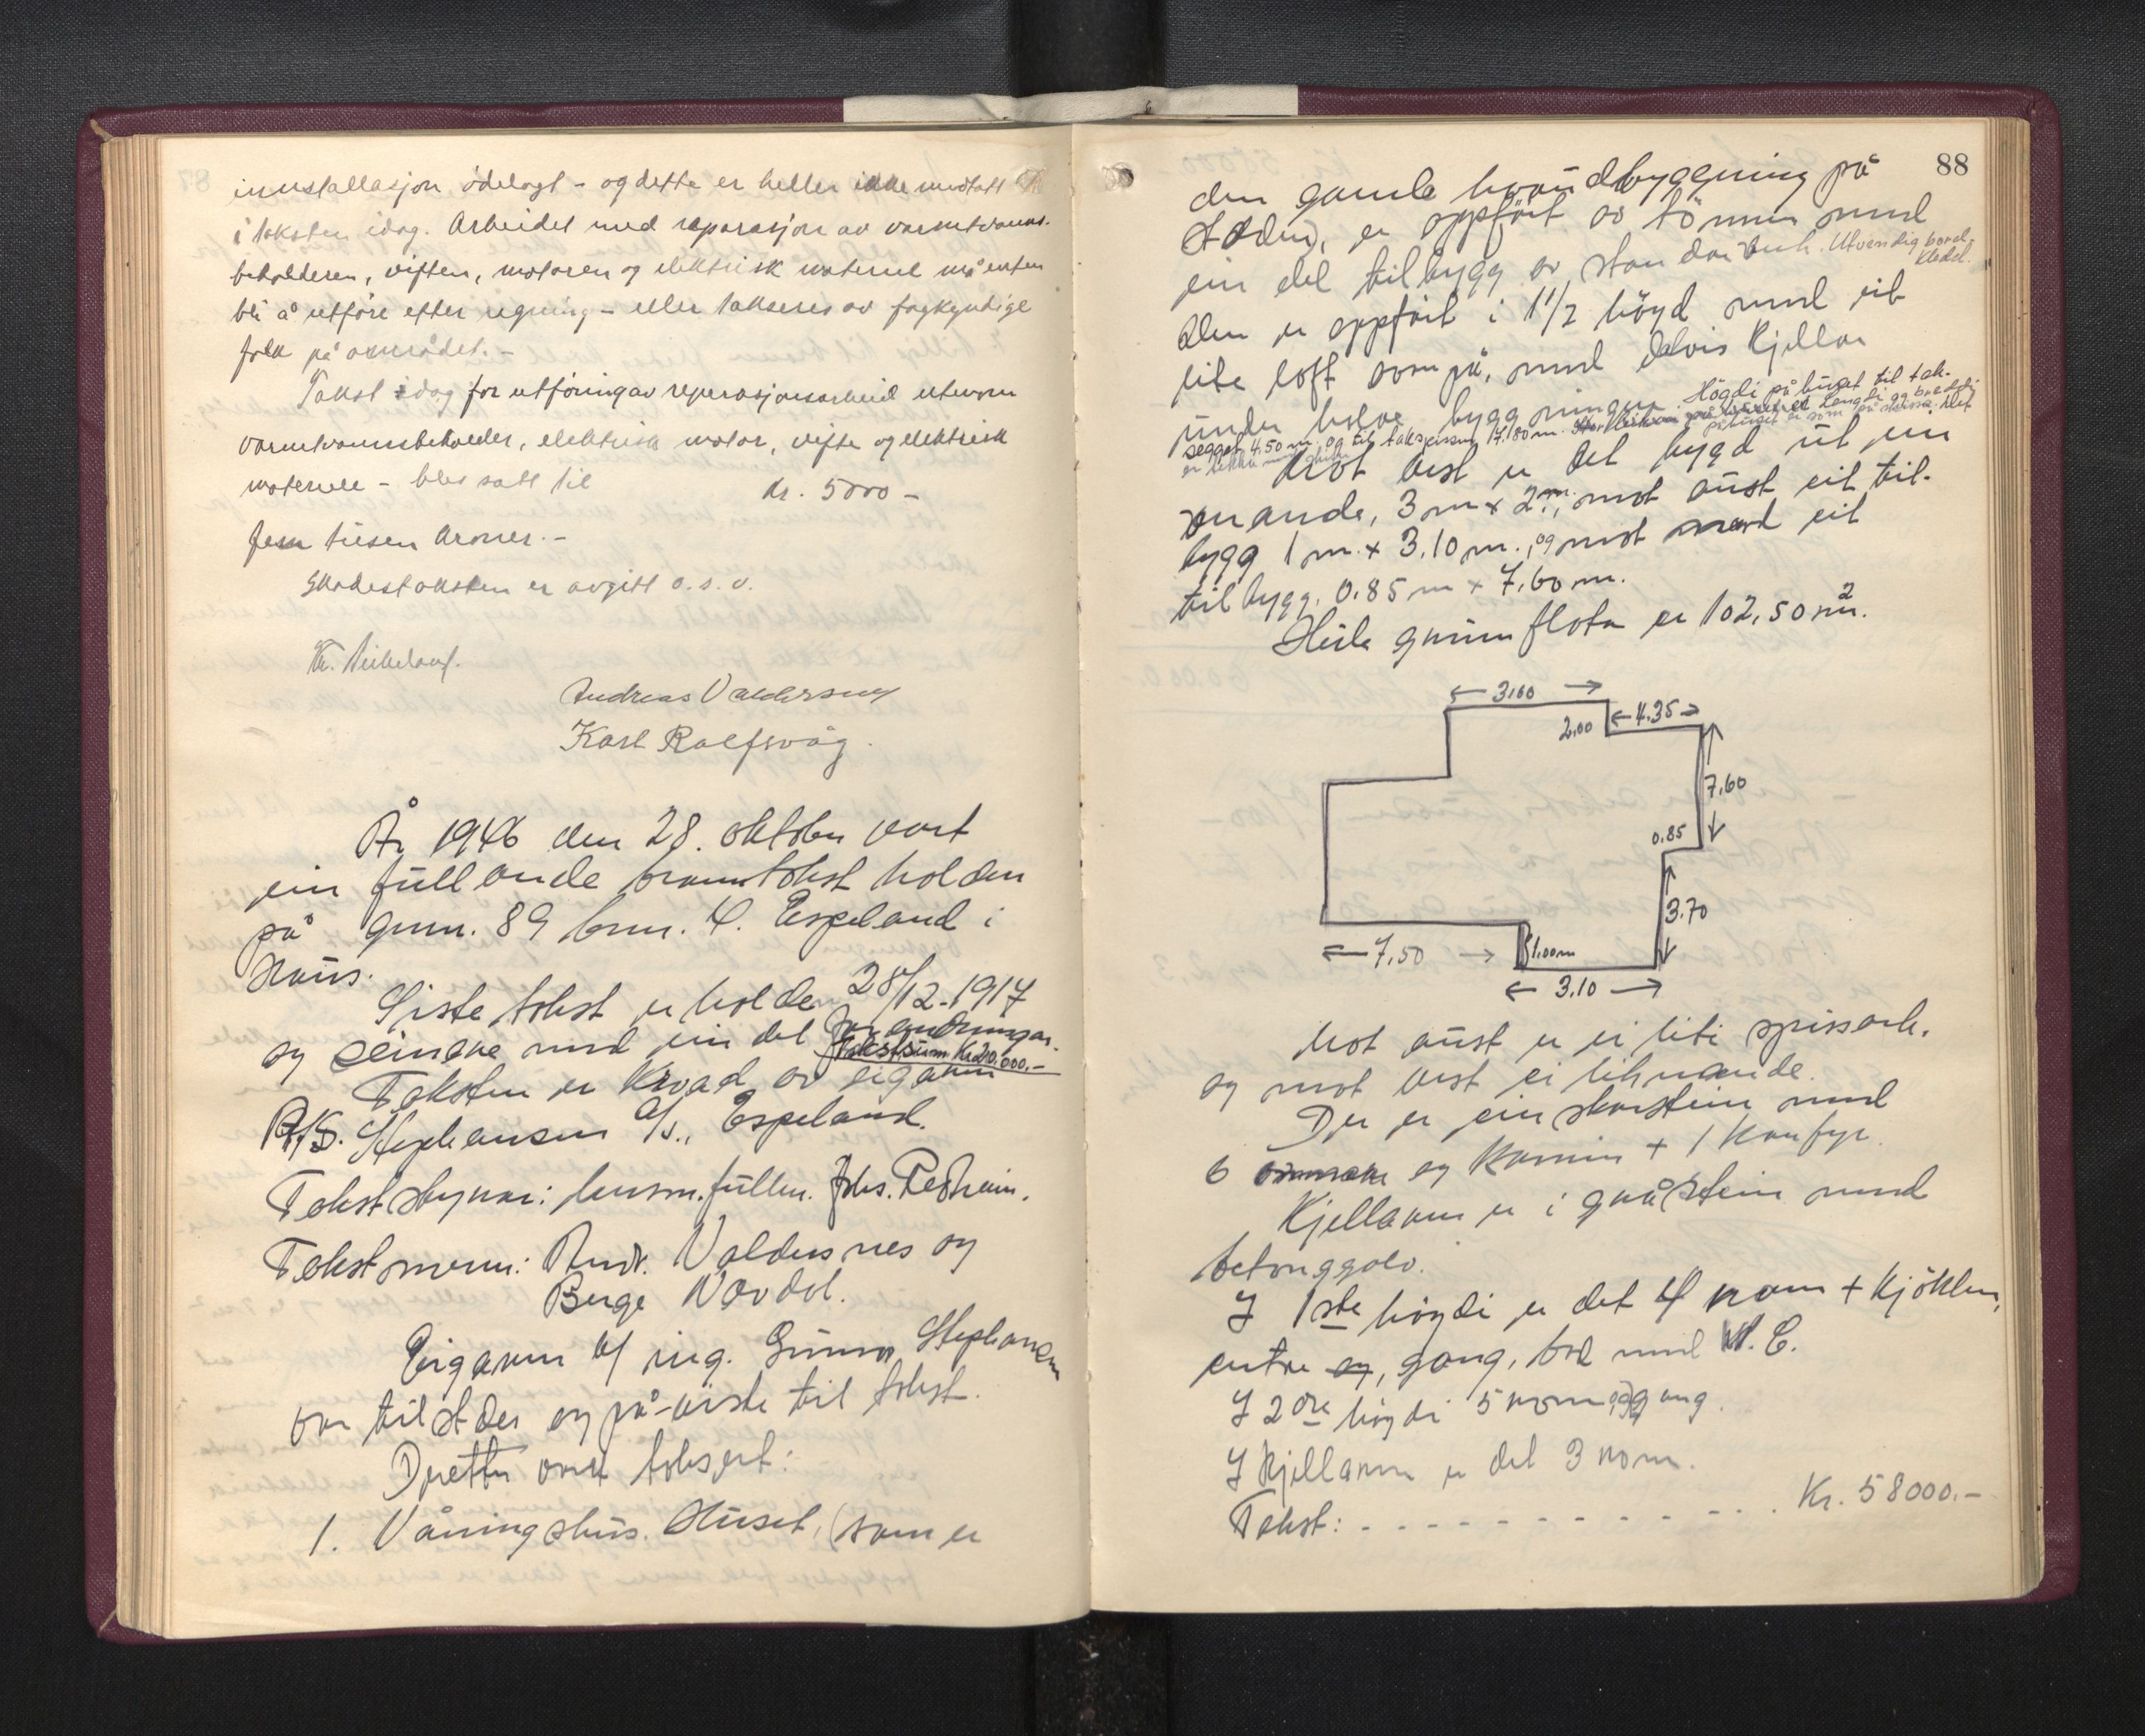 innstallasjon ödelagt - og dette er heller ikke medtatt
i taksten idag. Arbeidet med reparasjon av varmtvanns-
beholderen, viften, motoren og elektrisk materiel må enten
bli å utföre efter regning - eller takseres av fagkyndige
folk på området. -
Takst idag for utföring av reperasjonsarbeid utenom
varmtvannsbeholder, elektrisk motor, vifte og elektrisk
materiell - blev satt til Kr. 5000 -
Fem tusen kroner. -
Skadestaksten er avgitt o.s.v.
Andreas Valdersnes
Karl Rolfsvåg.
År 1946 den 28. oktober vart
ein fullande branntakst halden
på gnr. 89 bnr. 4. Espeland i
Haus.
Siste takst er halden 28/12-1917
og seinare med ein del forandringar.
Takstsum Kr 20.000.-
Taksten er kravd av eigaren
Stephansen A/S., Espeland.
Takststyrar: lensm.fullm. Johs. Redheim.
Takstmenn: Andr. Valdersnes og
Berge Nordal.
Eigaren v/ ing. Gunnar Stephansen
var tilstades og på-viste til takst.
Deretter vart taksert:
1. Våningshus. Huset, (som er
88
den gamle hovudbyggning på
staden), er oppfört av tömmer med
ein del tilbygg av standarverk. Utvendig bord-
kledd.
Den er oppfört i 1 1/2 högd med eit
lite loft oppå, med delvis kjellar
under halve byggningen. Högdi på huset til tak-
segget 4.50 m. og til takspissen 7.80 m. Lengdi og breiddi
på huset er som på skissa. Det
er
Mot vest er det bygd ut ein
veranda, 3 m x 2 m, mot aust eit til-
bygg 1 m. x 3.10 m., og mot nord eit
tilbygg, 0.85 m x 7.60 m.
Heile grunnflata er 102,50 m2.
3,60
2,00
4.35
7.60
0.85
3.70
7,50
1.00m
3.10
Mot aust er ei liti spissark.
og mot vest ei liknande.
Der er ein skorstein med
6 omnar og kamin + 1 komfyr.
Kjellaren er i gråstein med
betonggolv.
I 1ste högdi er det 4 rom + kjöken,
entre og, gang, bad med W.C.
I 2dre högdi 5 rom og gang.
I kjellaren er det 3 rom.
Takst: - - - - - - - - - - - - Kr. 58000.-